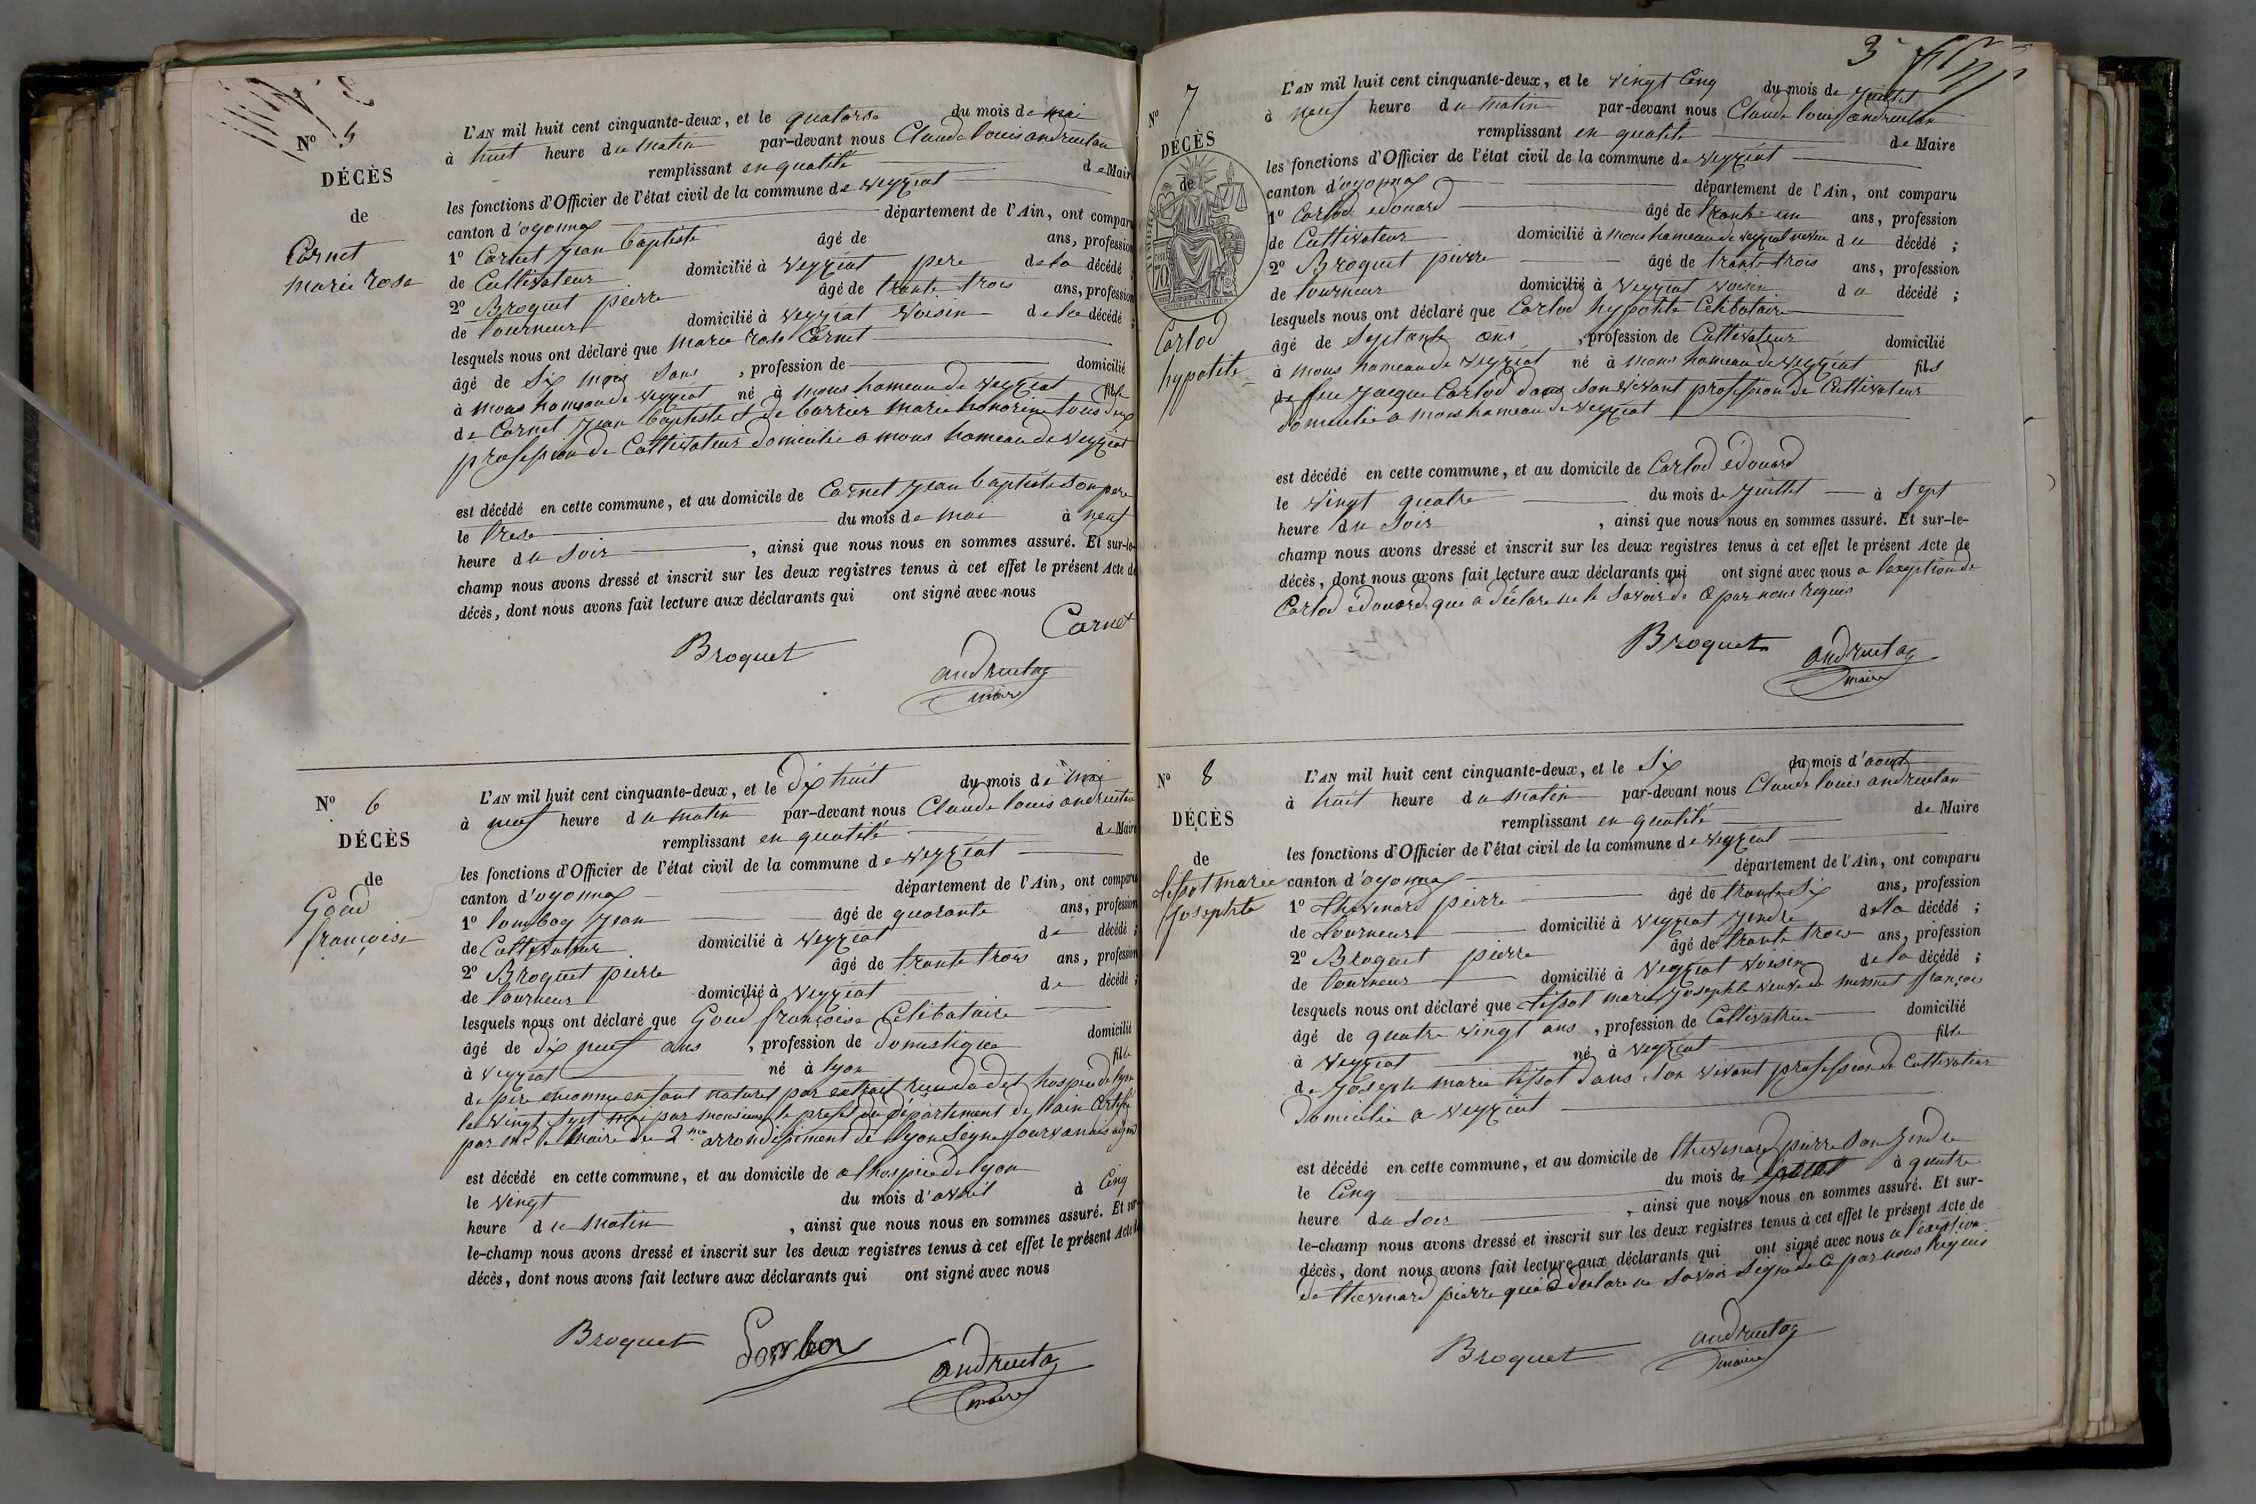 2
Nº 5
DÉCÈS
de
Cornet
marie rose
L'AN mil huit cent cinquante-deux, et le quatorze du mois de mai
à huit heure du matin par-devant nous Claude louis andruetan
remplissant en qualité de Maire
les fonctions d'Officier de l'état civil de la commune de veyziat
canton d'oyonnax département de l'Ain, ont comparu
1º Cornet jean baptiste âgé de ans, profession
de Cultivateur domicilié à veyziat pere de la décédé
2º Broquet pierre âgé de trante trois ans, profession
de tourneur domicilié à veyziat voisin de la décédé ;
lesquels nous ont déclaré que marie rose Cornet
âgé de Six mois sans , profession de domicilié
à mons hameau de veyziat né à mons hameau de veyziat fille
de Cornet jean baptiste et de barrier marie honorine tous deux
profession de Cultivateur domicilie a mons hameau de veyziat
est décédé en cette commune, et au domicile de Cornet jean baptiste son pere
le trese du mois de mai à neuf
heure du soir , ainsi que nous nous en sommes assuré. Et sur-le-
champ nous avons dressé et inscrit sur les deux registres tenus à cet effet le présent Acte de
décès, dont nous avons fait lecture aux déclarants qui ont signé avec nous
Cornet
Broquet
andruetan
maire
Nº 6
DÉCÈS
de
Goud
françoise
L'AN mil huit cent cinquante-deux, et le dix huit du mois de mai
à neuf heure du matin par-devant nous Claude louis andruetan
remplissant en qualité de Maire
les fonctions d'Officier de l'état civil de la commune de veyziat
canton d'oyonnax département de l'Ain, ont comparu
1º jean âgé de quarante ans, profession
de Cultivateur domicilié à veyziat de décédé ;
2º Broquet pierre âgé de trante trois ans, profession
de tourneur domicilié à veyziat de décédé ;
lesquels nous ont déclaré que Goud françoise Celibataire
âgé de dix neuf ans , profession de domestique domicilié
à veyziat né à lyon fille
de père inconnu enfant naturel par extrait rendu dudit hospice de lyon
le vingt sept mai par monsieur le prefet du département de l'ain Certifié
par mr le maire du 2me arrondissiment de lyon Signé
est décédé en cette commune, et au domicile de a l'hospice de lyon
le vingt du mois d'avril à Cinq
heure du matin , ainsi que nous nous en sommes assuré. Et sur-
le-champ nous avons dressé et inscrit sur les deux registres tenus à cet effet le présent Acte de
décès, dont nous avons fait lecture aux déclarants qui ont signé avec nous
Broquet
andruetan
maire
3
Nº 7
DÉCÈS
de
Carlod
hypolite
L'AN mil huit cent cinquante-deux, et le vingt Cinq du mois de juillet
à neuf heure du matin par-devant nous Claude louis andruetan
remplissant en qualité de Maire
les fonctions d'Officier de l'état civil de la commune de veyziat
canton d'oyonnax département de l'Ain, ont comparu
1º Carlod edouard âgé de trante un ans, profession
de Cultivateur domicilié à mons hameau de veyziat neveu du décédé ;
2º Broquet pierre âgé de trante trois ans, profession
de tourneur domicilié à veyziat voisin du décédé ;
lesquels nous ont déclaré que Carlod hypolite Celibataire
âgé de Septante ans , profession de Cultivateur domicilié
à mons hameau de veyziat né à mons hameau de veyziat fils
de feu jacque Carlod dans son vivant profession de Cultivateur
domicilie a mons hameau de veyziat
est décédé en cette commune, et au domicile de Carlod édouard
le vingt quatre du mois de juillet à Sept
heure du Soir , ainsi que nous nous en sommes assuré. Et sur-le-
champ nous avons dressé et inscrit sur les deux registres tenus à cet effet le présent Acte de
décès, dont nous avons fait lecture aux déclarants qui ont signé avec nous a l'exeption de
Carlod édouard qui a déclare ne le Savoir de Ce par nous requis
Broquet
andruetan
maire
Nº 8
DÉCÈS
de
tissot marie
josephte
L'AN mil huit cent cinquante-deux, et le Six du mois d'aout
à huit heure du matin par-devant nous Claude louis andruetan
remplissant en qualité de Maire
les fonctions d'Officier de l'état civil de la commune de veyziat
canton d'oyonnax département de l'Ain, ont comparu
1º thevenard pierre âgé de trante Six ans, profession
de tourneur domicilié à veyziat jendre de la décédé ;
2º Broquet pierre âgé de trante trois ans, profession
de tourneur domicilié à veyziat voisin de la décédé ;
lesquels nous ont déclaré que tissot marie josephte veuve de françois
âgé de quatre vingt ans , profession de Cultivatrice domicilié
à veyziat né à veyziat fille
de joseph marie tissot dans Son vivant profession de Cultivateur
domicilie a veyziat
est décédé en cette commune, et au domicile de thevenard pierre Son jendre
le Cinq du mois de à quatre
heure du Soir , ainsi que nous nous en sommes assuré. Et sur-
le-champ nous avons dressé et inscrit sur les deux registres tenus à cet effet le présent Acte de
décès, dont nous avons fait lecture aux déclarants qui ont signé avec nous a l'exeption
de thevenard pierre qui a déclare ne Savoir Signé de Ce par nous Requis
Broquet
andruetan
maire